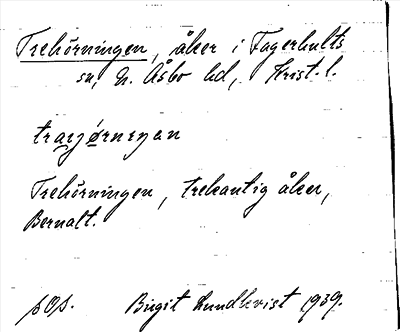 Trehörningen, åker i Fagerhults
sn, N. Åsbo hd, Krist. l.
Trehörningen, trekantig åker,
Bernalt.
Birgit Lundkvist 1939.